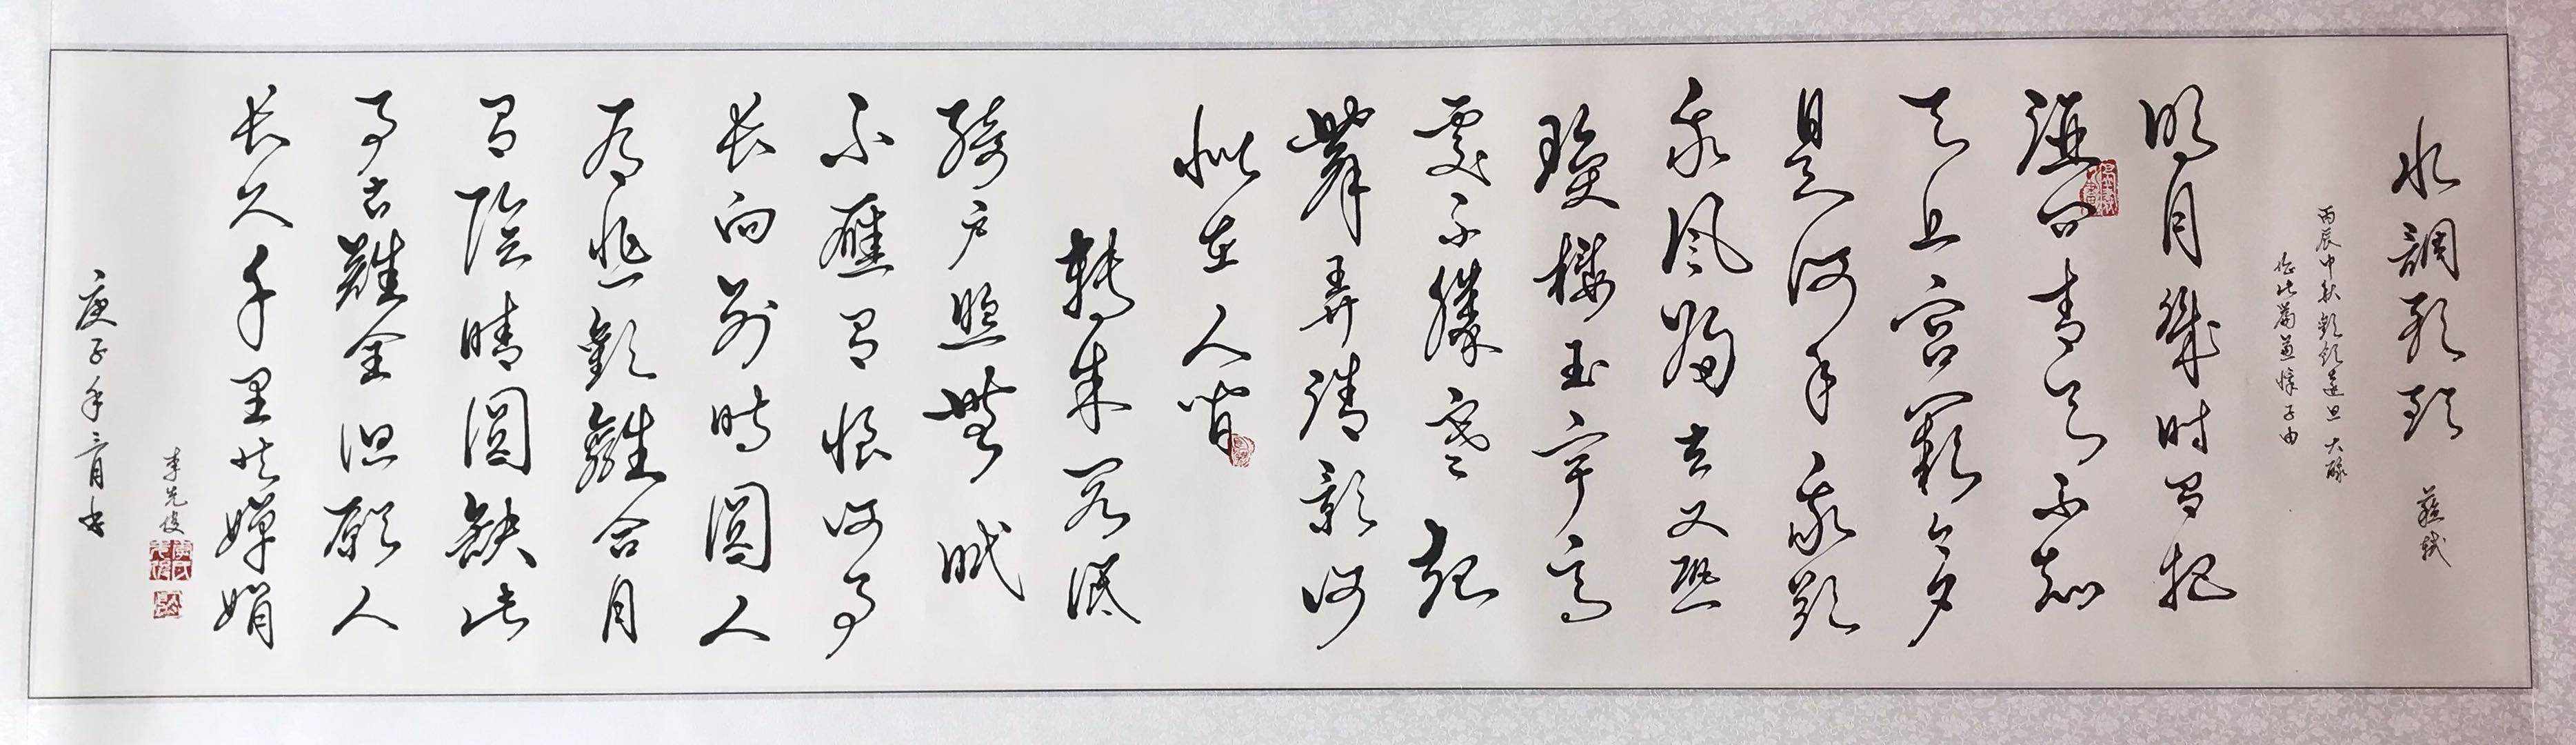 水調歌頭 蘇軾
丙辰中秋歡飲達旦大醉
作此篇兼懷子由
明月幾時有把
酒問青天不知
天上宮闕今夕
是何年我欲
乘風歸去又恐
瓊樓玉宇高
處不勝寒起
舞弄清影何
似在人間
轉朱閣低
綺戶照無眠
不應有恨何事
长向別時圓人
有悲歡離合月
有陰晴圓缺此
事古難全但願人
长久千里共嬋娟
李先俊
庚子年三月书